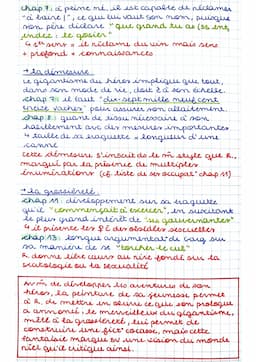 chap 7: à peine né, il est capable de réclamer
"à boire !", ce qui lui vaut son nom, puisque
son père déclare "que grand tu as (ss ent
le gosier"
+ profond = connaissances
→ la démesure
Le gigantisme du héros implique que tout,
dans son mode de vie, doit à son échelle.
chap 7: il faut "dix-sept mille neuf cent
vaches" pour assurer son allaitement.
chap 8: quant de tissu nécessaire à son
habillement avc des mesures importantes
+ taille de sa braguette = longueur d'une
canne
cette démesure s'inscrit ds le m̂ style que R.
marqué par la présence de multiples
énumérations (cf. liste de ses occupat° chap 11)
→ la grossièreté
chap 11: développement sur sa braguette
qu'il "commençait à exercer", en suscitant
le plus grand intérêt de "ses gouvernantes"
chap 13: longue argumentat° de Garg sur
sa manière de se "torcher le cul"
R donne libre cours au rire fondé sur la
scatologie ou la sexualité
de développer les aventures de son
héros, la peinture de sa jeunesse permet
à R. de mettre en œuvre ce que son prologue
a annoncé. le merveilleux du gigantisme,
mêlé à la grossièreté, lui permet de
construire une fict° cocasse, mais cette
fantaisie marque une vision du monde
réel qu'il critique ainsi.